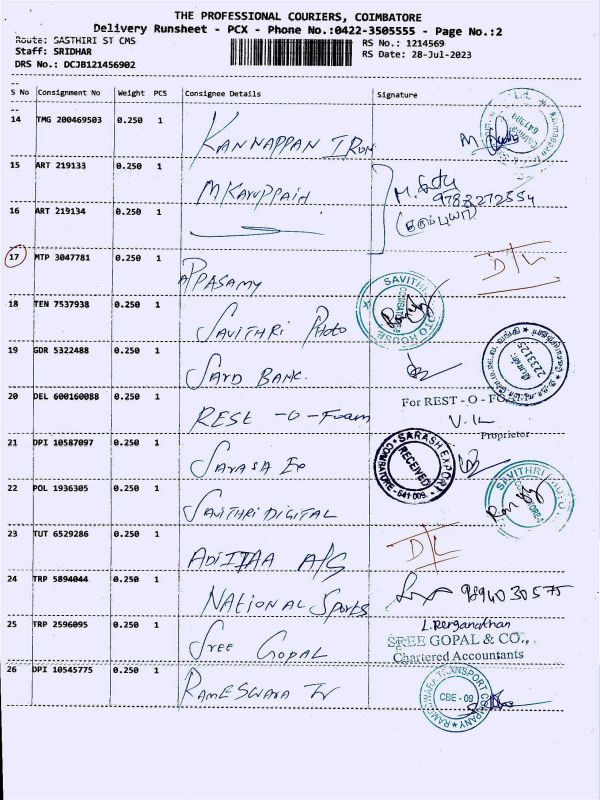 THE PROFESSIONAL COURIERS, COIMBATORE
Delivery Runsheet - PCX - Phone No.:0422-3505555 - Page No.:2
Route: SASTHIRI ST CMS
RS No.: 1214569
Staff: SRIDHAR
RS Date: 28-Jul-2023
DRS No.: DCJB121456902
S No Consignment No Weight PCS Consignee Details Signature
14 TMG 200469503 0.250 1 KANNAPPAN IRON
15 ART 219133 0.250 1 M KARUPPAIH
9788272554
16 ART 219134 0.250 1
17 MTP 3047781 0.250 1 APPASAMY D/L
18 TEN 7537938 0.250 1 SAVITHRI PHOTO
SAVITHRI PHOTO HOUSE
19 GDR 5322488 0.250 1 SAYD BANK.
2233129
20 DEL 600160088 0.250 1 REST -O- Foam
For REST - O - FOAM
V. IL
Proprietor
21 DPI 10587097 0.250 1 SARASA EX
SARASH EXPORT
RECEIVED
COIMBATORE - 641 009.
22 POL 1936305 0.250 1 SAVITHRI DIGITAL
SAVITHRI PHOTO
23 TUT 6529286 0.250 1 ADITYAA A/G D/L
24 TRP 5894044 0.250 1 NATIONAL Sports 9894030575
25 TRP 2596095 1 SREE GOPAL
0.250
L. Renganathan
SREE GOPAL & CO.,
Chartered Accountants
26 DPI 10545775 0.250 1 RAMESWARA Tr
RAMESWARA TRANSPORT COMPANY
CBE - 09